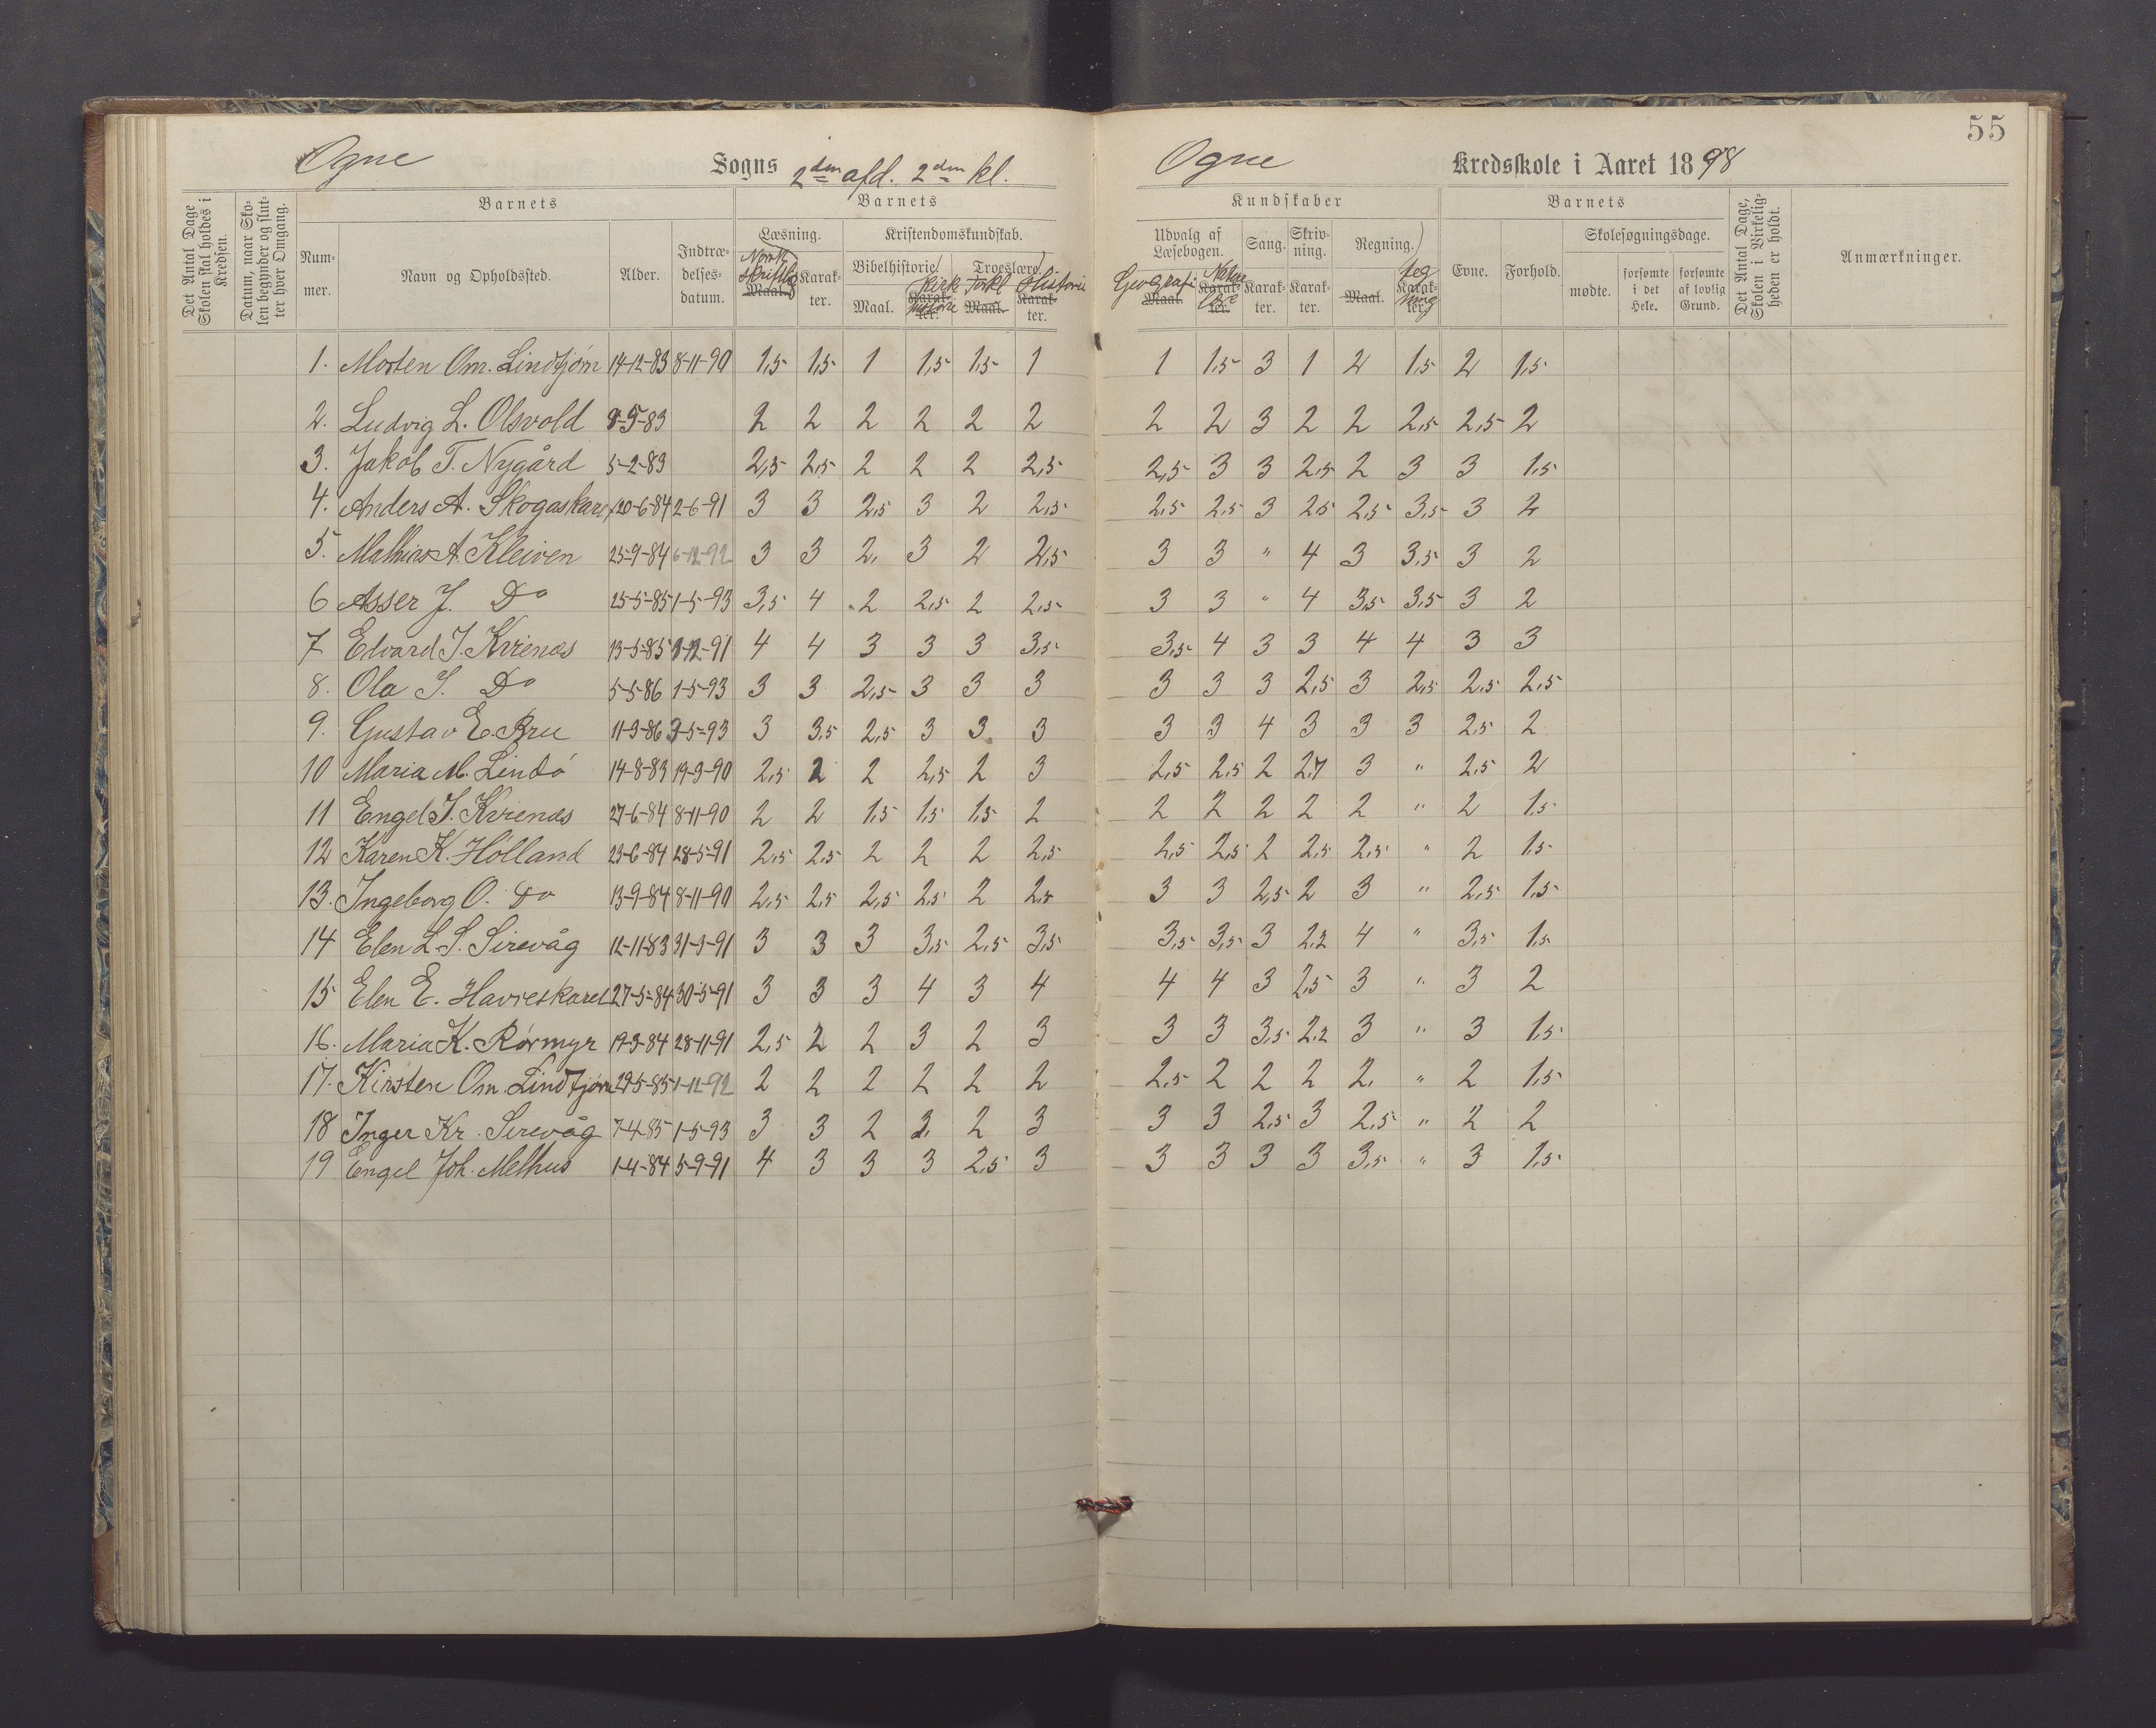 55
Ogne Sogns 2den afd. 2den kl. Ogne Kredsskole i Aaret 1898
Det Antal Dage Skolen skal holdes i Kredsen.
Datum, naar Skolen begynder og slutter hver Omgang.
Barnets
Nummer.
Navn og Opholdssted.
Alder.
Indtrædelsesdatum.
Barnets
Læsning.
Norsk skriftlig Maal.
Karakter.
Kristendomskundskab.
Bibelhistorie
Maal.
Kirkehistorie Karakter.
Troeslære.
Forkl Maal.
Historie Karakter.
Kundskaber
Udvalg af Læsebogen.
Geografi Maal.
Naturlære Karakter.
Sang.
Karakter.
Skrivning.
Karakter.
Regning.
Maal.
tegning Karakter.
Barnets
Evne.
Forhold.
Skolesøgningsdage.
mødte.
forsømte i det Hele.
forsømte af lovlig Grund.
Det Antal Dage, Skolen i Virkeligheden er holdt.
Anmærkninger.
1. Morten Om. Lindtjørn 14-12-83 8-11-90 1,5 1,5 1 1,5 1,5 1 1 1,5 3 1 2 1,5 2 1,5
2. Ludvig L. Olsvold 8-5-83 2 2 2 2 2 2 2 2 3 2 2 2,5 2,5 2
3. Jakob T. Nygård 5-2-83 2,5 2,5 2 2 2 2,5 2,5 3 3 2,5 2 3 3 1,5
4. Anders A. Skogaskaret 20-6-84 2-6-91 3 3 2,5 3 2 2,5 2,5 2,5 3 2,5 2,5 3,5 3 2
5. Mathias A. Kleiven 25-9-84 6-12-92 3 3 2, 3 2 2,5 3 3 " 4 3 3,5 3 2
6 Asser J. Do 25-5-85 1-5-93 3,5 4 2 2,5 2 2,5 3 3 " 4 3,5 3,5 3 2
7 Edvard J. Kvienæs 13-5-85 1-12-91 4 4 3 3 3 3,5 3,5 4 3 3 4 4 3 3
8. Ola S. Do 5-5-86 1-5-93 3 3 2,5 3 3 3 3 3 3 2,5 3 2,5 2,5 2,5
9. Gustav E. Bru 11-3-86 3-5-93 3 3,5 2,5 3 3 3 3 3 4 3 3 3 2,5 2
10 Maria M. Lindö 14-8-83 19-3-90 2,5 2 2 2,5 2 3 2,5 2,5 2 2,7 3 " 2,5 2
11 Engel J. Kvienæs 27-6-84 8-11-90 2 2 1,5 1,5 1,5 2 2 2 2 2 2 " 2 1,5
12 Karen K. Hölland 23-6-84 28-5-91 2,5 2,5 2 2 2 2,5 2,5 2,5 2 2,5 2,5 " 2 1,5
13. Ingeborg O. Do 13-9-84 8-11-90 2,5 2,5 2,5 2,5 2 2,5 3 3 2,5 2 3 " 2,5 1,5
14 Elen L. S. Sirevåg 12-11-83 31-3-91 3 3 3 3,5 2,5 3,5 3,5 3,5 3 2,2 4 " 3,5 1,5
15 Elen E. Havreskaret 27-5-84 30-5-91 3 3 3 4 3 4 4 4 3 2,5 3 " 3 2
16. Maria K. Rørmyr 19-3-84 28-11-91 2,5 2 2 3 2 3 3 3 3,5 2,2 3 " 3 1,5
17. Kirsten Om. Lindtjørn 29-5-85 1-12-92 2 2 2 2 2 2 2,5 2 2 2 2, " 2 1,5
18 Inger Kr. Sirevåg 7-4-85 1-5-93 3 3 2 3, 2 3 3 3 2,5 3 2,5 " 2 2
19 Engel Joh. Melhus 1-4-84 5-9-91 4 3 3 3 2,5 3 3 3 3 3 3,5 " 3 1,5